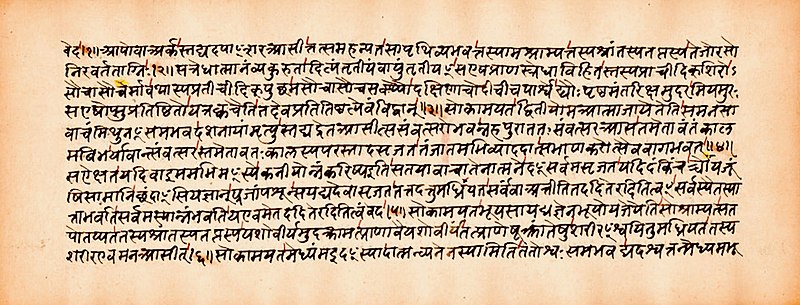 वेद॥१॥आपोवाअर्कस्तद्यदपाꣳशरआसीत्तत्समहन्यतसापृथिव्यभवत्तस्यामश्राम्यत्तस्यश्रांतस्यतप्तस्यतेजोरसो
निरवर्तताग्निः॥२॥सत्रेधात्मानंव्यकुरुतादित्यंतृतीयंवायुंतृतीयꣳसएषप्राणस्त्रेधाविहितस्तस्यप्राचीदिक्शिरो
सौचासौचेर्मावथास्यप्रतीचीदिक्पुछमसौचासौचसक्थ्यौदक्षिणाचोदीचीचपार्श्वेद्यौःपृष्ठमंतरिक्षमुदरमियमुरः
सएषोप्सुप्रतिष्ठितोयत्रक्वचैतितदेवप्रतितिष्ठत्येवंविद्वान्॥३॥सोकामयतद्वितीयोमआत्माजायेतेतिसमनसा
वाचंमिथुनꣳसमभवदशनायांमृत्युस्तद्यद्रेतआसीत्ससंवत्सरोभवन्नहपुराततःसंवत्सरआसतमेतावंतंकाल
मबिभर्यावान्त्संवत्सरस्तमेतावतःकालस्यपरस्तादसृजततंजातमभिव्याददात्सभाणकरोत्सैववागभवत्॥४॥
सऐक्षतयदिवाइममभिमꣳस्येकनीयोन्नंकरिष्यइतिसतयावाचातेनात्मनेदꣳसर्वमसृजतयदिदंकिंचर्चोयजूं
षिसामानिछंदाꣳसियज्ञान्प्रजांपशून्सयद्यदेवासृजततत्तदत्तुमध्रियतसर्वंवाअत्तीतितददितेरदितित्वꣳसर्वस्यैतस्या
त्ताभवतिसर्वमस्यान्नंभवतियएवमेतददितेरदितित्वंवेद॥५॥सोकामयतभूयसायज्ञेनभूयोयजेयेतिसोश्राम्यत्सत
पोतप्यततस्यश्रांतस्यतप्तस्ययशोवीर्यमुदक्रामत्प्राणावैयशोवीर्यंतत्प्राणेषूत्क्रांतेषुशरीरꣳश्वयितुमध्रियततस्य
शरीरएवमनआसीत्॥६॥सोकामयतमेध्यंमइदꣳस्यादात्मन्व्यनेनस्यामितिततोश्वःसमभवद्यदश्वत्तन्मेध्यमभू